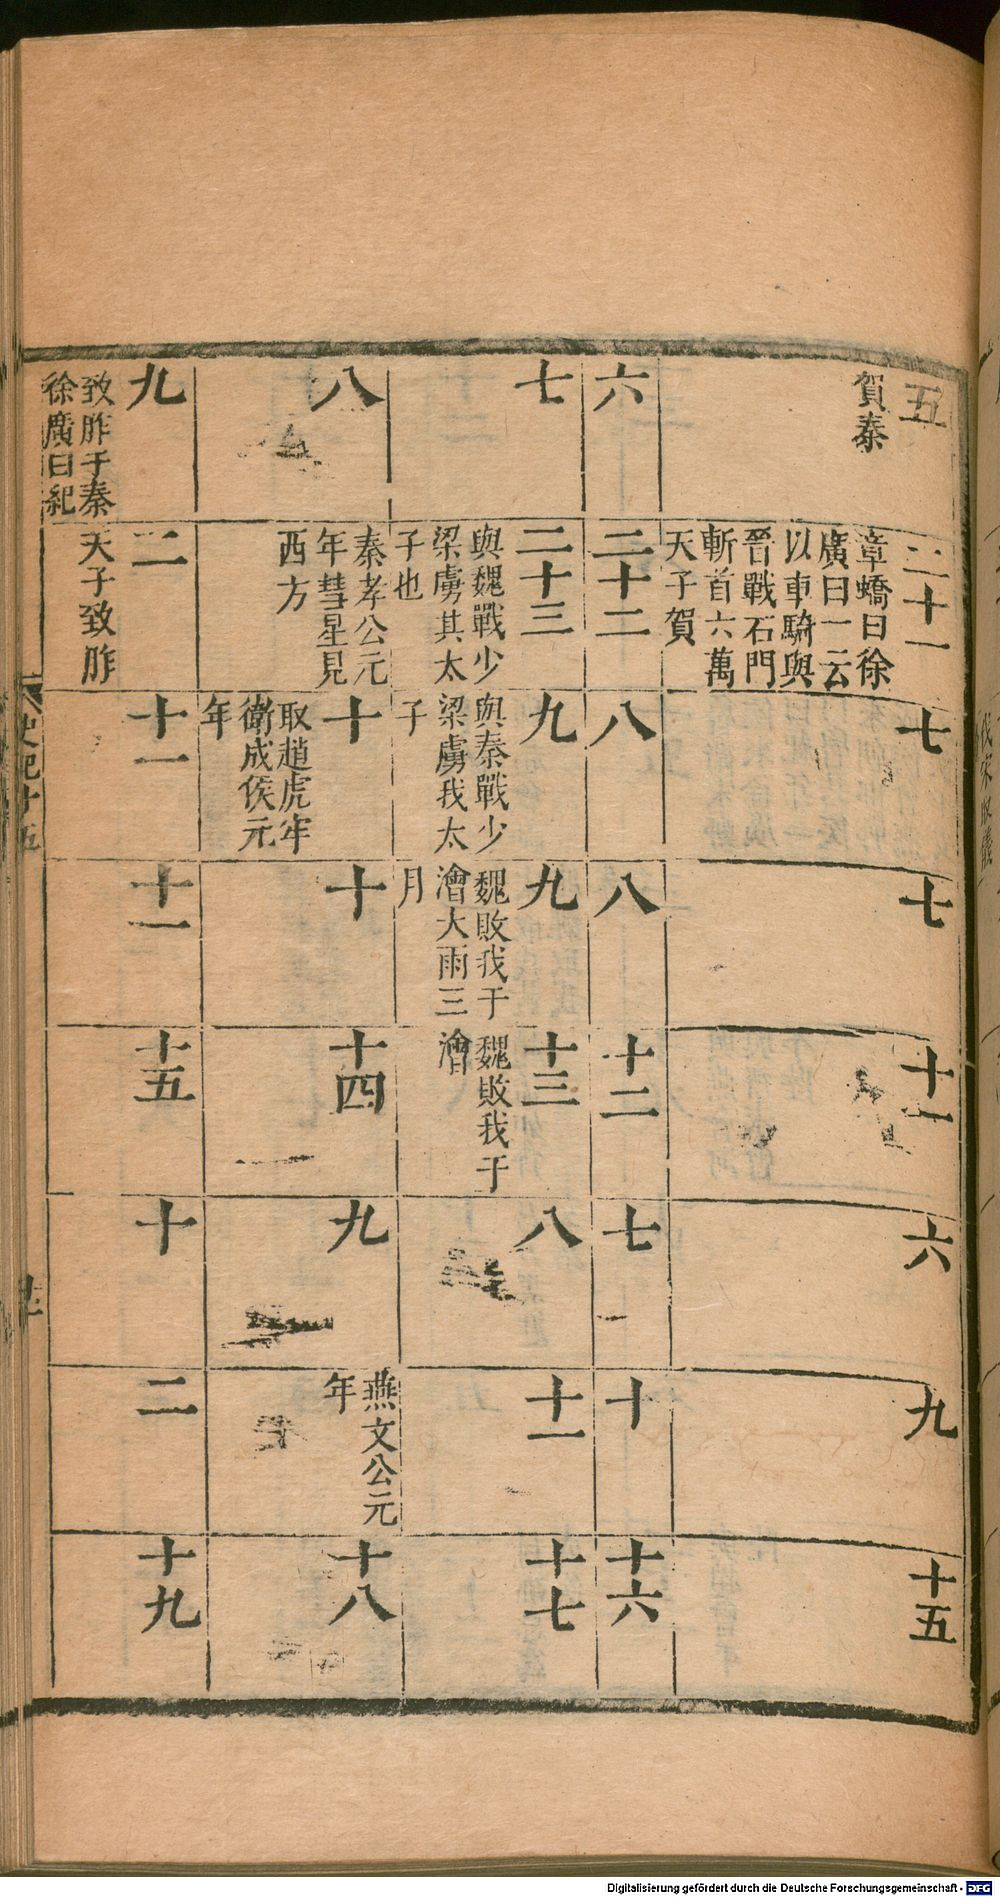 五
賀秦
二十一
章蟜曰徐
廣曰一云
以車騎與
晉戰石門
斬首六萬
天子賀
七
七
十一
六
九
十五
六
二十二
八
八
十二
七
十
十六
七
二十三
與魏戰少
梁虜其太
子也
九
與秦戰少
梁虜我太
子
九
魏敗我于
澮大雨三
月
十三
魏敗我于
澮
八
十一
十七
八
秦孝公元
年彗星見
西方
十
取趙虎牢
衛成侯元
年
十
十四
九
燕文公元
年
十八
九
致胙于秦
徐廣曰紀
二
天子致胙
十一
十一
十五
十
二
十九
史記十五
Digitalisierung gefördert durch die Deutsche Forschungsgemeinschaft - DFG